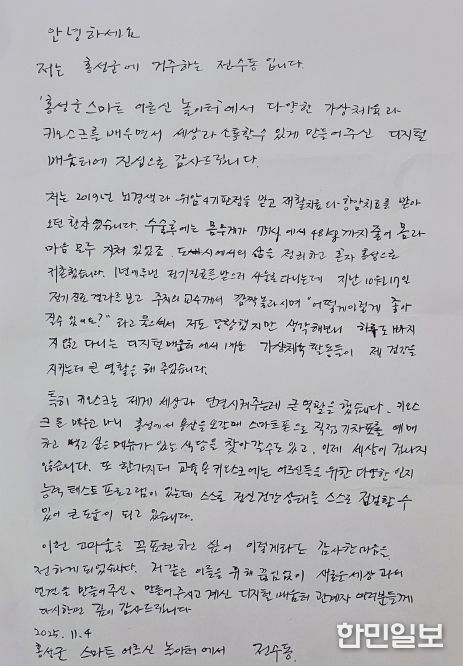 안녕하세요
저는 홍성군에 거주하는 전수동 입니다.
'홍성군 스마트 어르신 놀이터'에서 다양한 가상체육과
키오스크를 배우면서 세상과 소통할수 있게 만들어주신 디지털
배움터에 진심으로 감사드립니다.
저는 2019년 뇌경색과 위암4기판정을 받고 재활치료와 항암치료를 받아
오던 환자였습니다. 수술후에는 몸무게가 78kg에서 48kg까지줄어 몸과
마음 모두 지쳐 있었죠. 도시에서의 삶을 정리하고 혼자 홍성으로
귀촌했습니다. 1년에두번 정기진료를 받으러 서울로 다니는데 지난 10월17일
정기진료 결과를 보고 주치의 교수께서 깜짝놀라시며 "어떻게이렇게 좋아
질수 있어요?" 라고 물으셔서 저도 당황했지만 생각해보니 하루도 빠지
지 않고 다니는 디지털 배움터에서 배운 가상체육 활동들이 제 건강을
지키는데 큰 역할을 해 주었습니다.
특히 키오스크는 제게 세상과 연결시켜주는데 큰 역할을 했습니다. 키오스
크를 배우고 나니 홍성에서 용산을 오갈때 스마트폰으로 직접 기차표를 예매
하고 먹고 싶은메뉴가 있는 식당을 찾아갈수도 있고, 이제 세상이 겁나지
않습니다. 또 한가지더 교육용키오스크에는 어르신들을 위한 다양한 인지
능력 테스트 프로그램이 있는데 스스로 정신건강상태를 스스로 점검할 수
있어 큰 도움이 되고 있습니다.
이런 고마움을 꼭표현하고 싶어 이렇게라도 감사한마음을
전하게 되었습니다. 저같은 이들을 위해 끊임없이 새로운세상 과의
연결을 만들어주신, 만들어 주시고 계신 디지털 배움터 관계자 여러분들께
다시한번 깊이 감사드립니다
2025. 11. 4
홍성군 스마트 어르신 놀이터에서 전수동.
한민일보